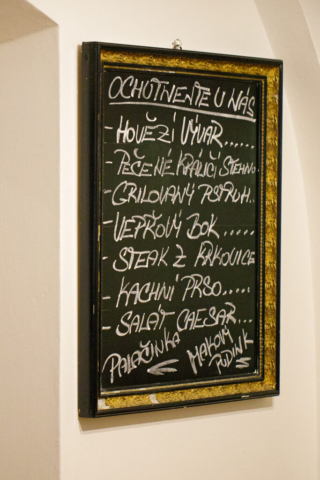 OCHUTNEJTE U NÁS
- HOVĚZÍ VÝVAR......
- PEČENÉ KRÁLIČÍ STEHNO
- GRILOVANÝ PSTRUH..
- VEPŘOVÝ BOK.....
- STEAK Z KRKOVICE
- KACHNÍ PRSO.....
- SALÁT CAESAR...
PALAČINKA
MAKOVÝ
PUDINK